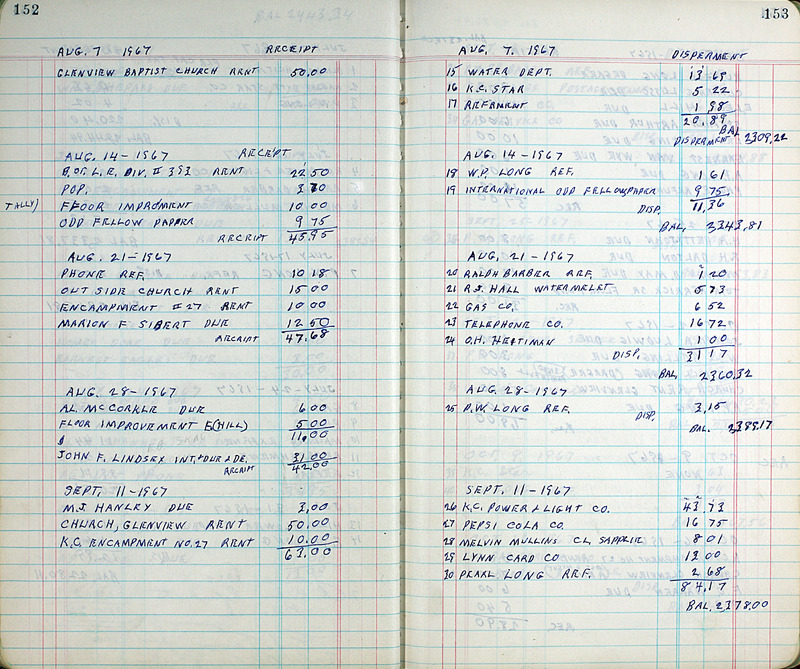 152
AUG. 7 1967 RECEIPT
GLENVIEW BAPTIST CHURCH RENT 50.00
AUG. 14-1967 RECEIPT
B. OF L.E. DIV. # 393 RENT 22 50
POP. 3 70
TALLY) FLOOR IMPROMENT 10 00
ODD FELLOW PAPER 9 75
RECEIPT 45.95
AUG. 21-1967
PHONE REF. 10 18
OUT SIDE CHURCH RENT 15 00
ENCAMPMENT # 27 RENT 10 00
MARION F SIBERT DUE 12 50
RECEIPT 47.68
AUG. 28-1967
AL. MCCORKLE DUE 6 00
FLOOR IMPROVEMENT E(HILL) 5 00
$ 11.00
JOHN F. LINDSEX INT. + DUR & DE. 31.00
RECEIPT 42.00
SEPT. 11-1967
M.J. HANLEY DUE 3,00
CHURCH, GLENVIEW RENT 50.00
K.C. ENCAMPMENT NO. 27 RENT 10.00
63.00
153
AUG. 7. 1967 DISPERMENT
15 WATER DEPT. 13 69
16 K.C. STAR 5 22
17 REFRMENT 1 98
20.89
BAL 2309.22
DISPERMENT
AUG. 14-1967
18 W.P. LONG REF. 1 61
19 INTERNATIONAL ODD FELLOW PAPER 9 75
DISP. 11,36
BAL. 2343,81
AUG. 21-1967
20 RALPH BARBER REF. 1 20
21 R.S. HALL WATERMELET 5 73
22 GAS CO. 6 52
23 TELEPHONE CO. 16 72
24 O.H. HEFTIMAN 1 00
DISP. 31 17
BAL 2360.32
AUG. 28-1967
25 P.W. LONG REF. 3,15
DISP.
BAL. 2389.17
SEPT. 11-1967
26 K.C. POWER & LIGHT CO. 43.73
27 PEPSI COLA CO. 16 75
28 MELVIN MULLINS CL, SAPPLIE 8 01
29 LYNN CARD CO 13 00
30 PEARL LONG REF. 2 68
84,17
BAL. 2378.00